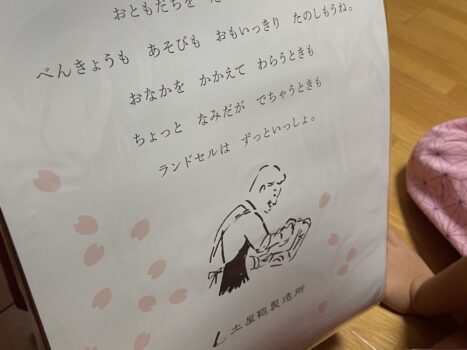 おともだちを
べんきょうも　あそびも　おもいっきり　たのしもうね。
おなかを　かかえて　わらうときも
ちょっと　なみだが　でちゃうときも
ランドセルは　ずっといっしょ。
土屋鞄製造所